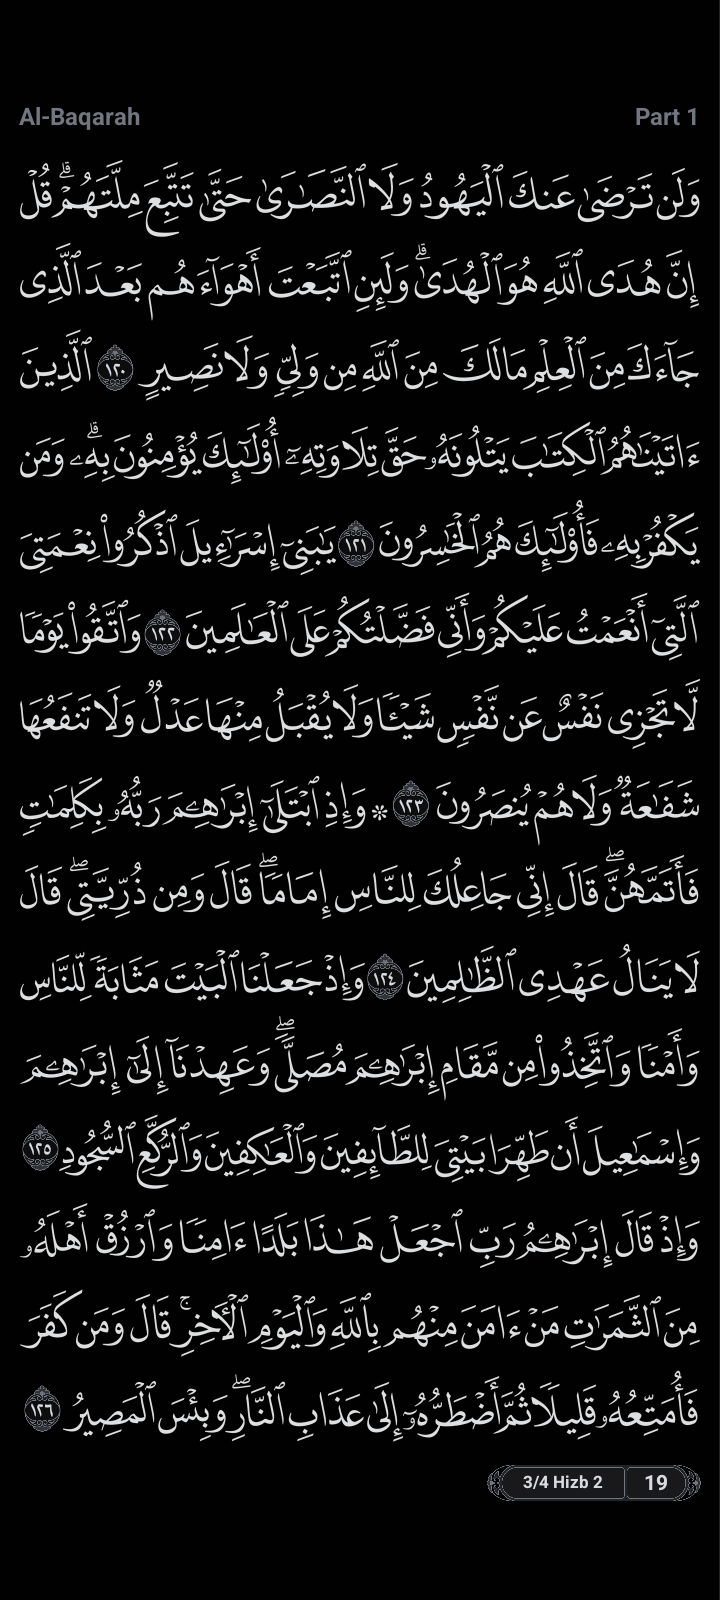 Al-Baqarah
Part 1
وَلَن تَرْضَىٰ عَنكَ ٱلْيَهُودُ وَلَا ٱلنَّصَٰرَىٰ حَتَّىٰ تَتَّبِعَ مِلَّتَهُمْ ۗ قُلْ
إِنَّ هُدَى ٱللَّهِ هُوَ ٱلْهُدَىٰ ۗ وَلَئِنِ ٱتَّبَعْتَ أَهْوَآءَهُم بَعْدَ ٱلَّذِى
جَآءَكَ مِنَ ٱلْعِلْمِ مَا لَكَ مِنَ ٱللَّهِ مِن وَلِىٍّ وَلَا نَصِيرٍ ١٢٠ ٱلَّذِينَ
ءَاتَيْنَٰهُمُ ٱلْكِتَٰبَ يَتْلُونَهُۥ حَقَّ تِلَاوَتِهِۦٓ أُو۟لَٰٓئِكَ يُؤْمِنُونَ بِهِۦ ۗ وَمَن
يَكْفُرْ بِهِۦ فَأُو۟لَٰٓئِكَ هُمُ ٱلْخَٰسِرُونَ ١٢١ يَٰبَنِىٓ إِسْرَٰٓءِيلَ ٱذْكُرُوا۟ نِعْمَتِىَ
ٱلَّتِىٓ أَنْعَمْتُ عَلَيْكُمْ وَأَنِّى فَضَّلْتُكُمْ عَلَى ٱلْعَٰلَمِينَ ١٢٢ وَٱتَّقُوا۟ يَوْمًا
لَّا تَجْزِى نَفْسٌ عَن نَّفْسٍ شَيْـًٔا وَلَا يُقْبَلُ مِنْهَا عَدْلٌ وَلَا تَنفَعُهَا
شَفَٰعَةٌ وَلَا هُمْ يُنصَرُونَ ١٢٣ ۞ وَإِذِ ٱبْتَلَىٰٓ إِبْرَٰهِـۧمَ رَبُّهُۥ بِكَلِمَٰتٍ
فَأَتَمَّهُنَّ ۖ قَالَ إِنِّى جَاعِلُكَ لِلنَّاسِ إِمَامًا ۖ قَالَ وَمِن ذُرِّيَّتِى ۖ قَالَ
لَا يَنَالُ عَهْدِى ٱلظَّٰلِمِينَ ١٢٤ وَإِذْ جَعَلْنَا ٱلْبَيْتَ مَثَابَةً لِّلنَّاسِ
وَأَمْنًا وَٱتَّخِذُوا۟ مِن مَّقَامِ إِبْرَٰهِـۧمَ مُصَلًّى ۖ وَعَهِدْنَآ إِلَىٰٓ إِبْرَٰهِـۧمَ
وَإِسْمَٰعِيلَ أَن طَهِّرَا بَيْتِىَ لِلطَّآئِفِينَ وَٱلْعَٰكِفِينَ وَٱلرُّكَّعِ ٱلسُّجُودِ ١٢٥
وَإِذْ قَالَ إِبْرَٰهِـۧمُ رَبِّ ٱجْعَلْ هَٰذَا بَلَدًا ءَامِنًا وَٱرْزُقْ أَهْلَهُۥ
مِنَ ٱلثَّمَرَٰتِ مَنْ ءَامَنَ مِنْهُم بِٱللَّهِ وَٱلْيَوْمِ ٱلْـَٔاخِرِ ۚ قَالَ وَمَن كَفَرَ
فَأُمَتِّعُهُۥ قَلِيلًا ثُمَّ أَضْطَرُّهُۥٓ إِلَىٰ عَذَابِ ٱلنَّارِ ۖ وَبِئْسَ ٱلْمَصِيرُ ١٢٦
3/4 Hizb 2
19